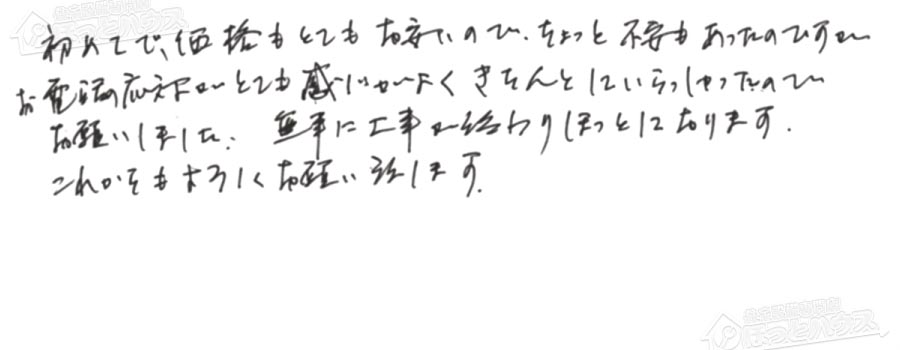 初めてで、価格もとてもお安いので、ちょっと不安もあったのですが
お電話の応対がとても感じがよくきちんとしていらっしゃったので
お願いしました。無事に工事が終わりほっとしております。
これからもよろしくお願い致します。
ほっとハウス